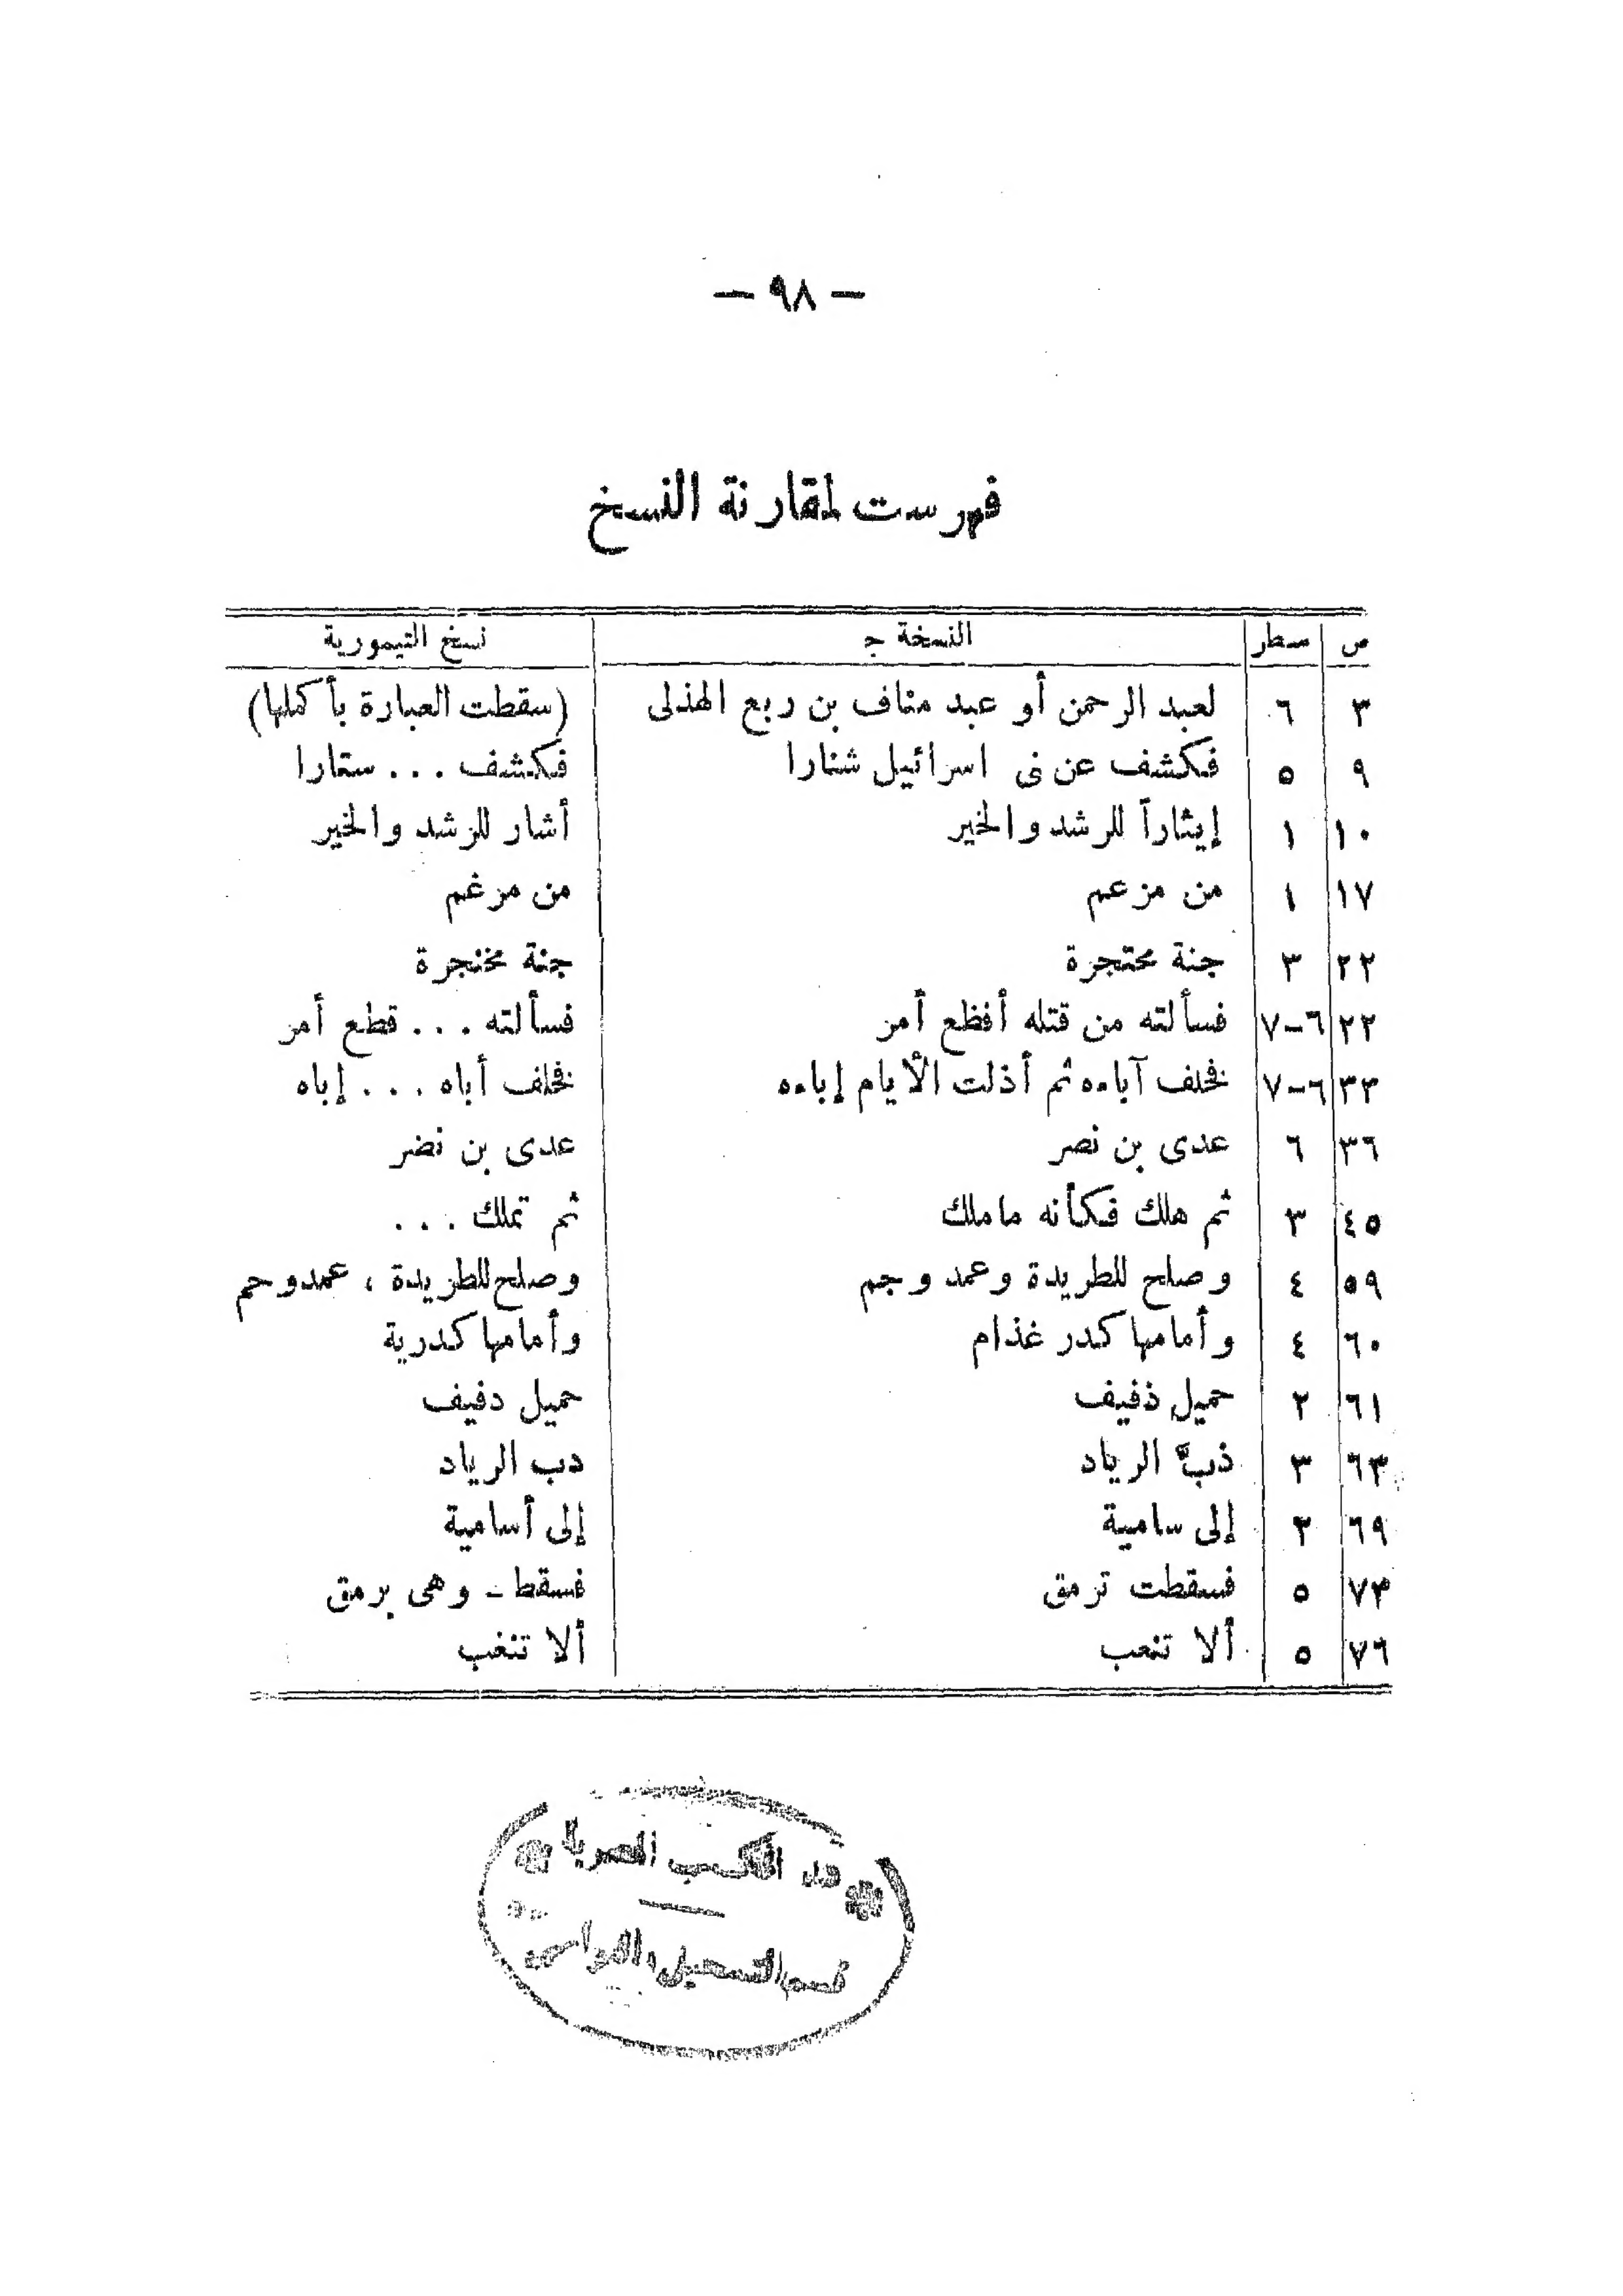 — ٩٨ —
فهرست لمقارنة النسخ
ص سطر النسخة ج نسخ التيمورية
٣ ٦ لعبد الرحمن أو عبد مناف بن ربع الهذلى (سقطت العبارة بأكملها)
٩ ٥ فكشف عن نى اسرائيل شنارا فكشف ... ستارا
١٠ ١ إيثاراً للرشد والخير أشار للرشد والخير
١٧ ١ من مزعم من مرغم
٢٢ ٣ جنة محتجرة جنة مخنجرة
٢٢ ٦-٧ فسألته من قتله أفظع أمر فسألته ... قطع أمر
٣٣ ٦-٧ فخلف آباءه ثم أذلت الأيام إباءه فخلف أباه ... إباه
٣٦ ٦ عدى بن نصر عدى بن نضر
٤٥ ٣ ثم هلك فكأنه ماملك ثم تملك ...
٥٩ ٤ وصلح للطريدة وعمد وجم وصلح للطريدة ، عمدوحم
٦٠ ٤ وأمامها كدر غذام وأمامها كدرية
٦١ ٢ حميل ذفيف حميل دفيف
٦٣ ٣ ذبّ الرياد دب الرياد
٦٩ ٣ إلى سامية إلى أسامية
٧٣ ٥ فسقطت ترمق فسقط ـ وهى برمق
٧٦ ٥ ألا تنعب ألا تنغب